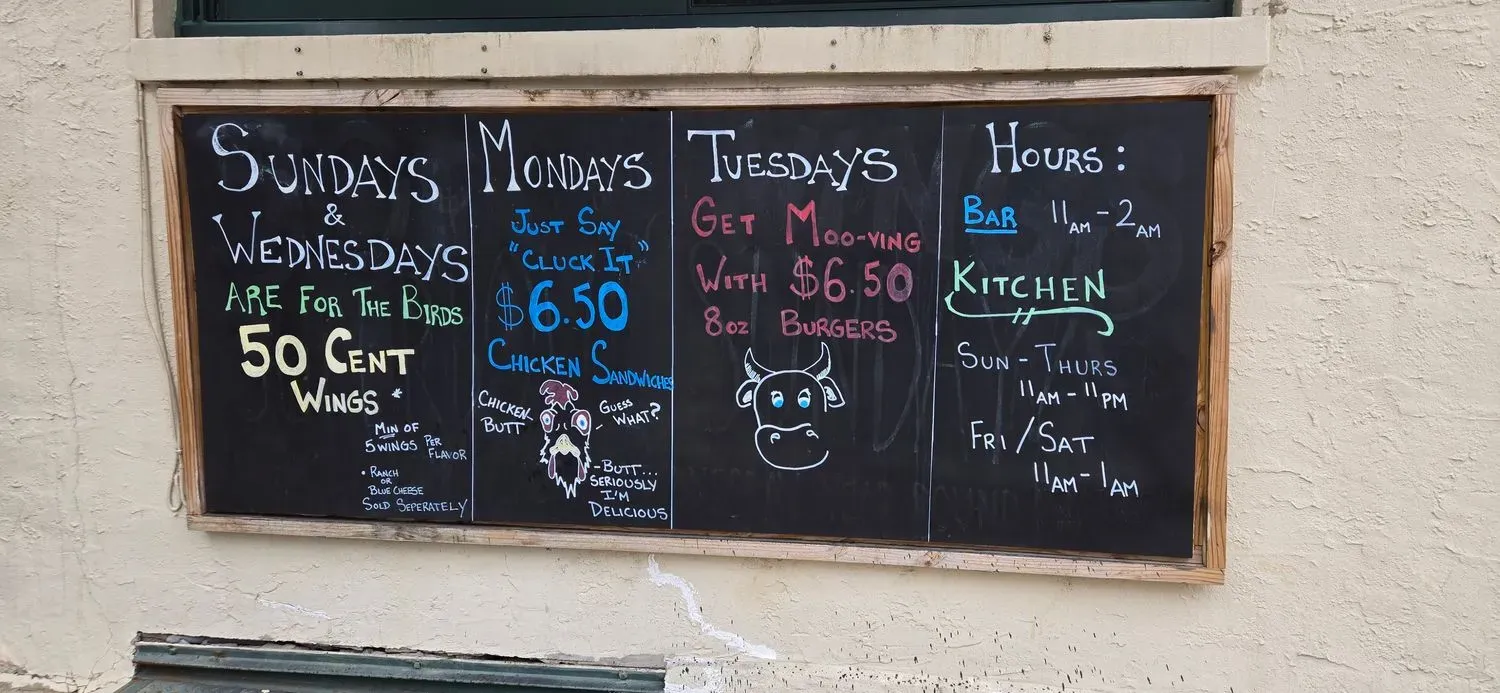 SUNDAYS
&
WEDNESDAYS
ARE FOR THE BIRDS
50 CENT
WINGS *
MIN OF
5 WINGS PER
FLAVOR
• RANCH
OR
BLUE CHEESE
SOLD SEPERATELY
MONDAYS
JUST SAY
"CLUCK IT"
$6.50
CHICKEN SANDWICHES
GUESS
WHAT?
CHICKEN
BUTT
-BUTT...
SERIOUSLY
I'M
DELICIOUS
TUESDAYS
GET MOO-VING
WITH $6.50
8OZ BURGERS
HOURS:
BAR 11AM-2AM
KITCHEN
SUN-THURS
11AM-11PM
FRI/SAT
11AM-1AM